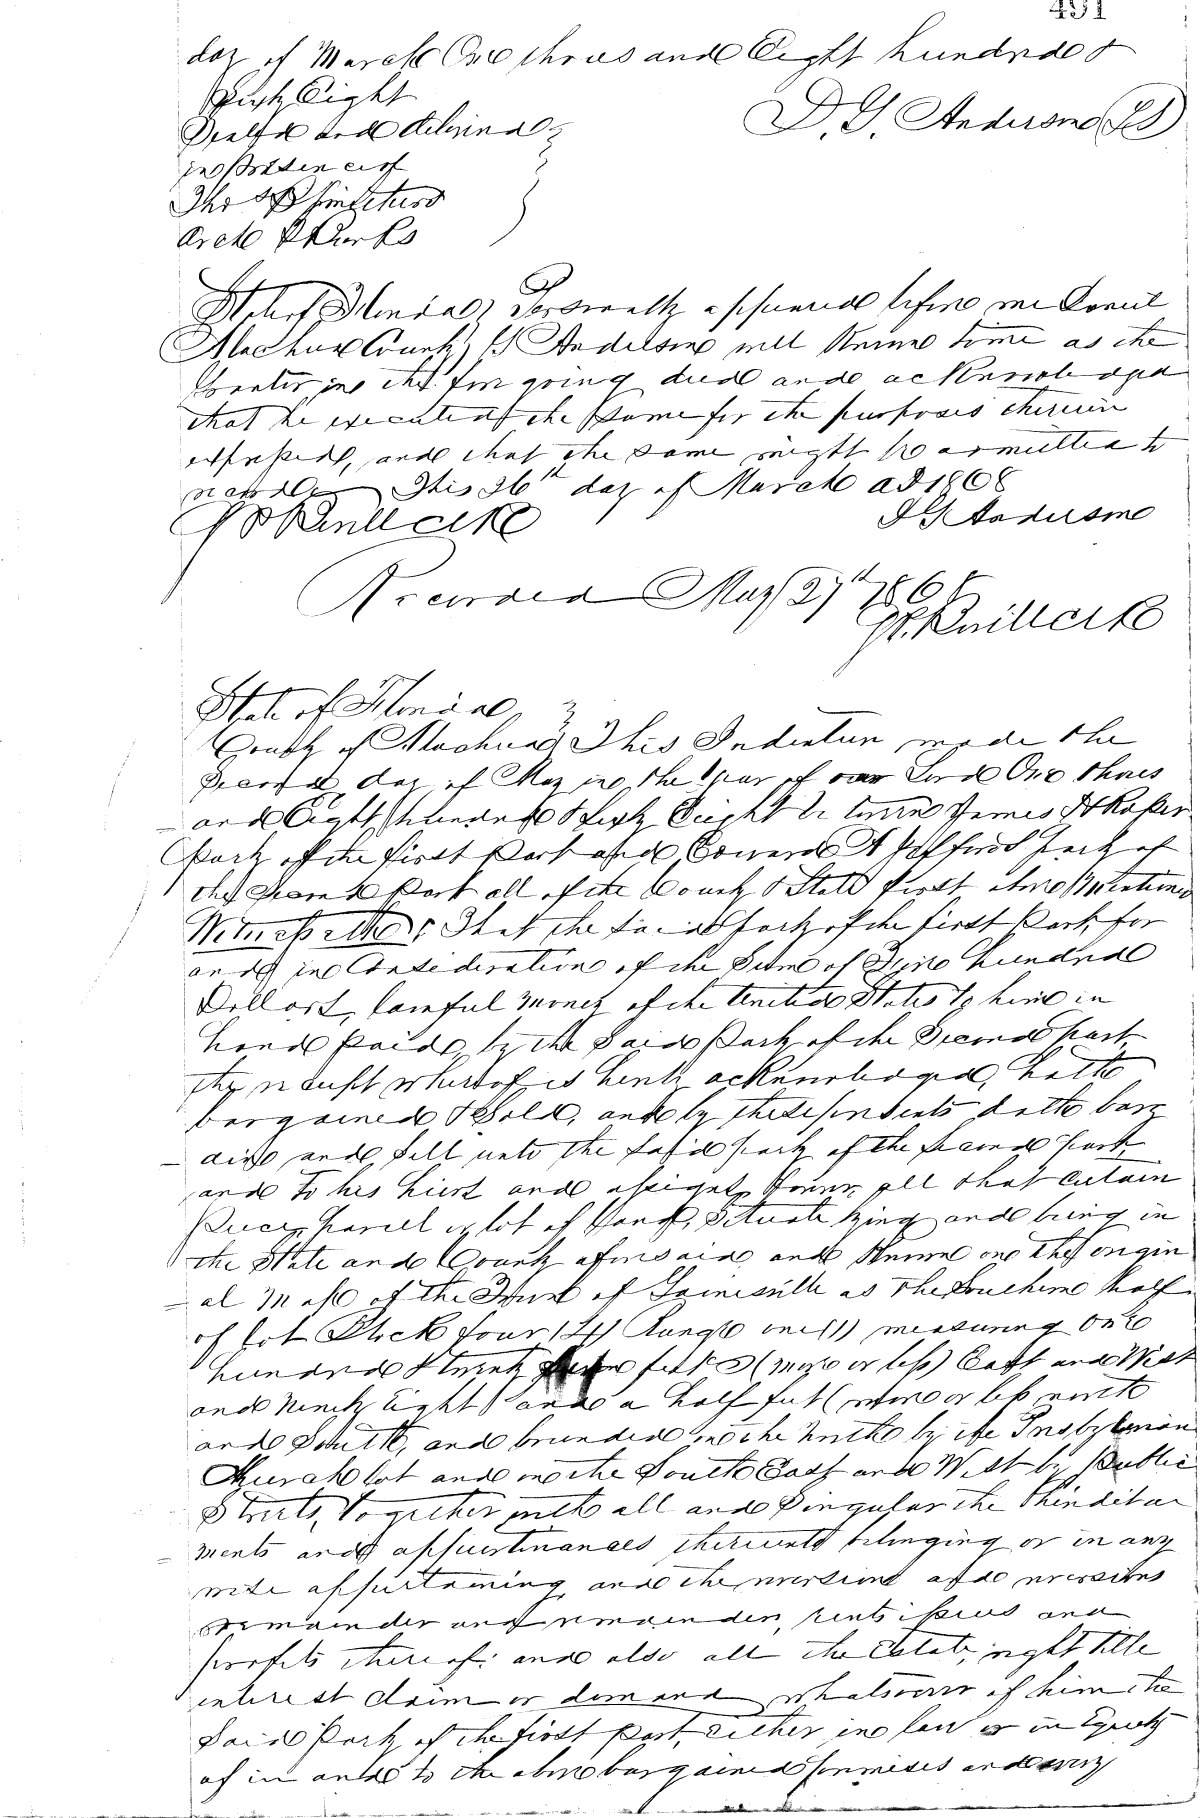 491
day of March One thous and Eight hundred &
Sixty Eight
Sealed and delivered D. G. Anderson (LS)
in Presence of
Arch
State of Florida Personally appeared before me
Alachua County G Anderson well Known to me as the
Grantor in the foregoing deed and acknowledged
that he executed the Same for the purposes therein
expressed, and that the same might be admitted to
record This 26th day of March AD 1868
Clk D G Anderson
Recorded May 27th 1868
Clk
State of Florida
County of Alachua This Indenture made the
Second day of May in the Year of our Lord One thous
and Eight hundred & Sixty Eight between James H Roper
Party of the first Part and Edward A Party of
the Second Part all of the County & State first above Mentioned
Witnesseth: That the said party of the first Part, for
and in Consideration of the Sum of hundred
Dollars, lawful money of the United States to him in
hand Paid, by the Said Party of the Second part
the receipt whereof is hereby acknowledged, hath
bargained & Sold, and by these presents doth barg
ain and Sell unto the Said party of the Second part,
and to his heirs and assigns forever all that certain
Piece, Parcell or lot of Land, Situate lying and being in
the State and County aforesaid and Known on the origin
al Map of the Town of Gainesville as The Southern half
of Lot Block four (4) Range one (1) measuring One
hundred & twenty feet (more or less) East and West
and Ninety Eight and a half feet (more or less north
and South, and bounded on the North by the Presbyterian
Church lot and on the South East and West by Public
Streets, Together with all and Singular the Heredita
ments and appurtenances thereunto belonging or in any
wise appertaining and the reversion and reversions
remainder and remainders, rents issues and
profits thereof: and also all the Estate, right title
interest claim or demand whatsoever of him the
Said Party of the first part, either in law or in Equity
of in and to the above bargained premises and every